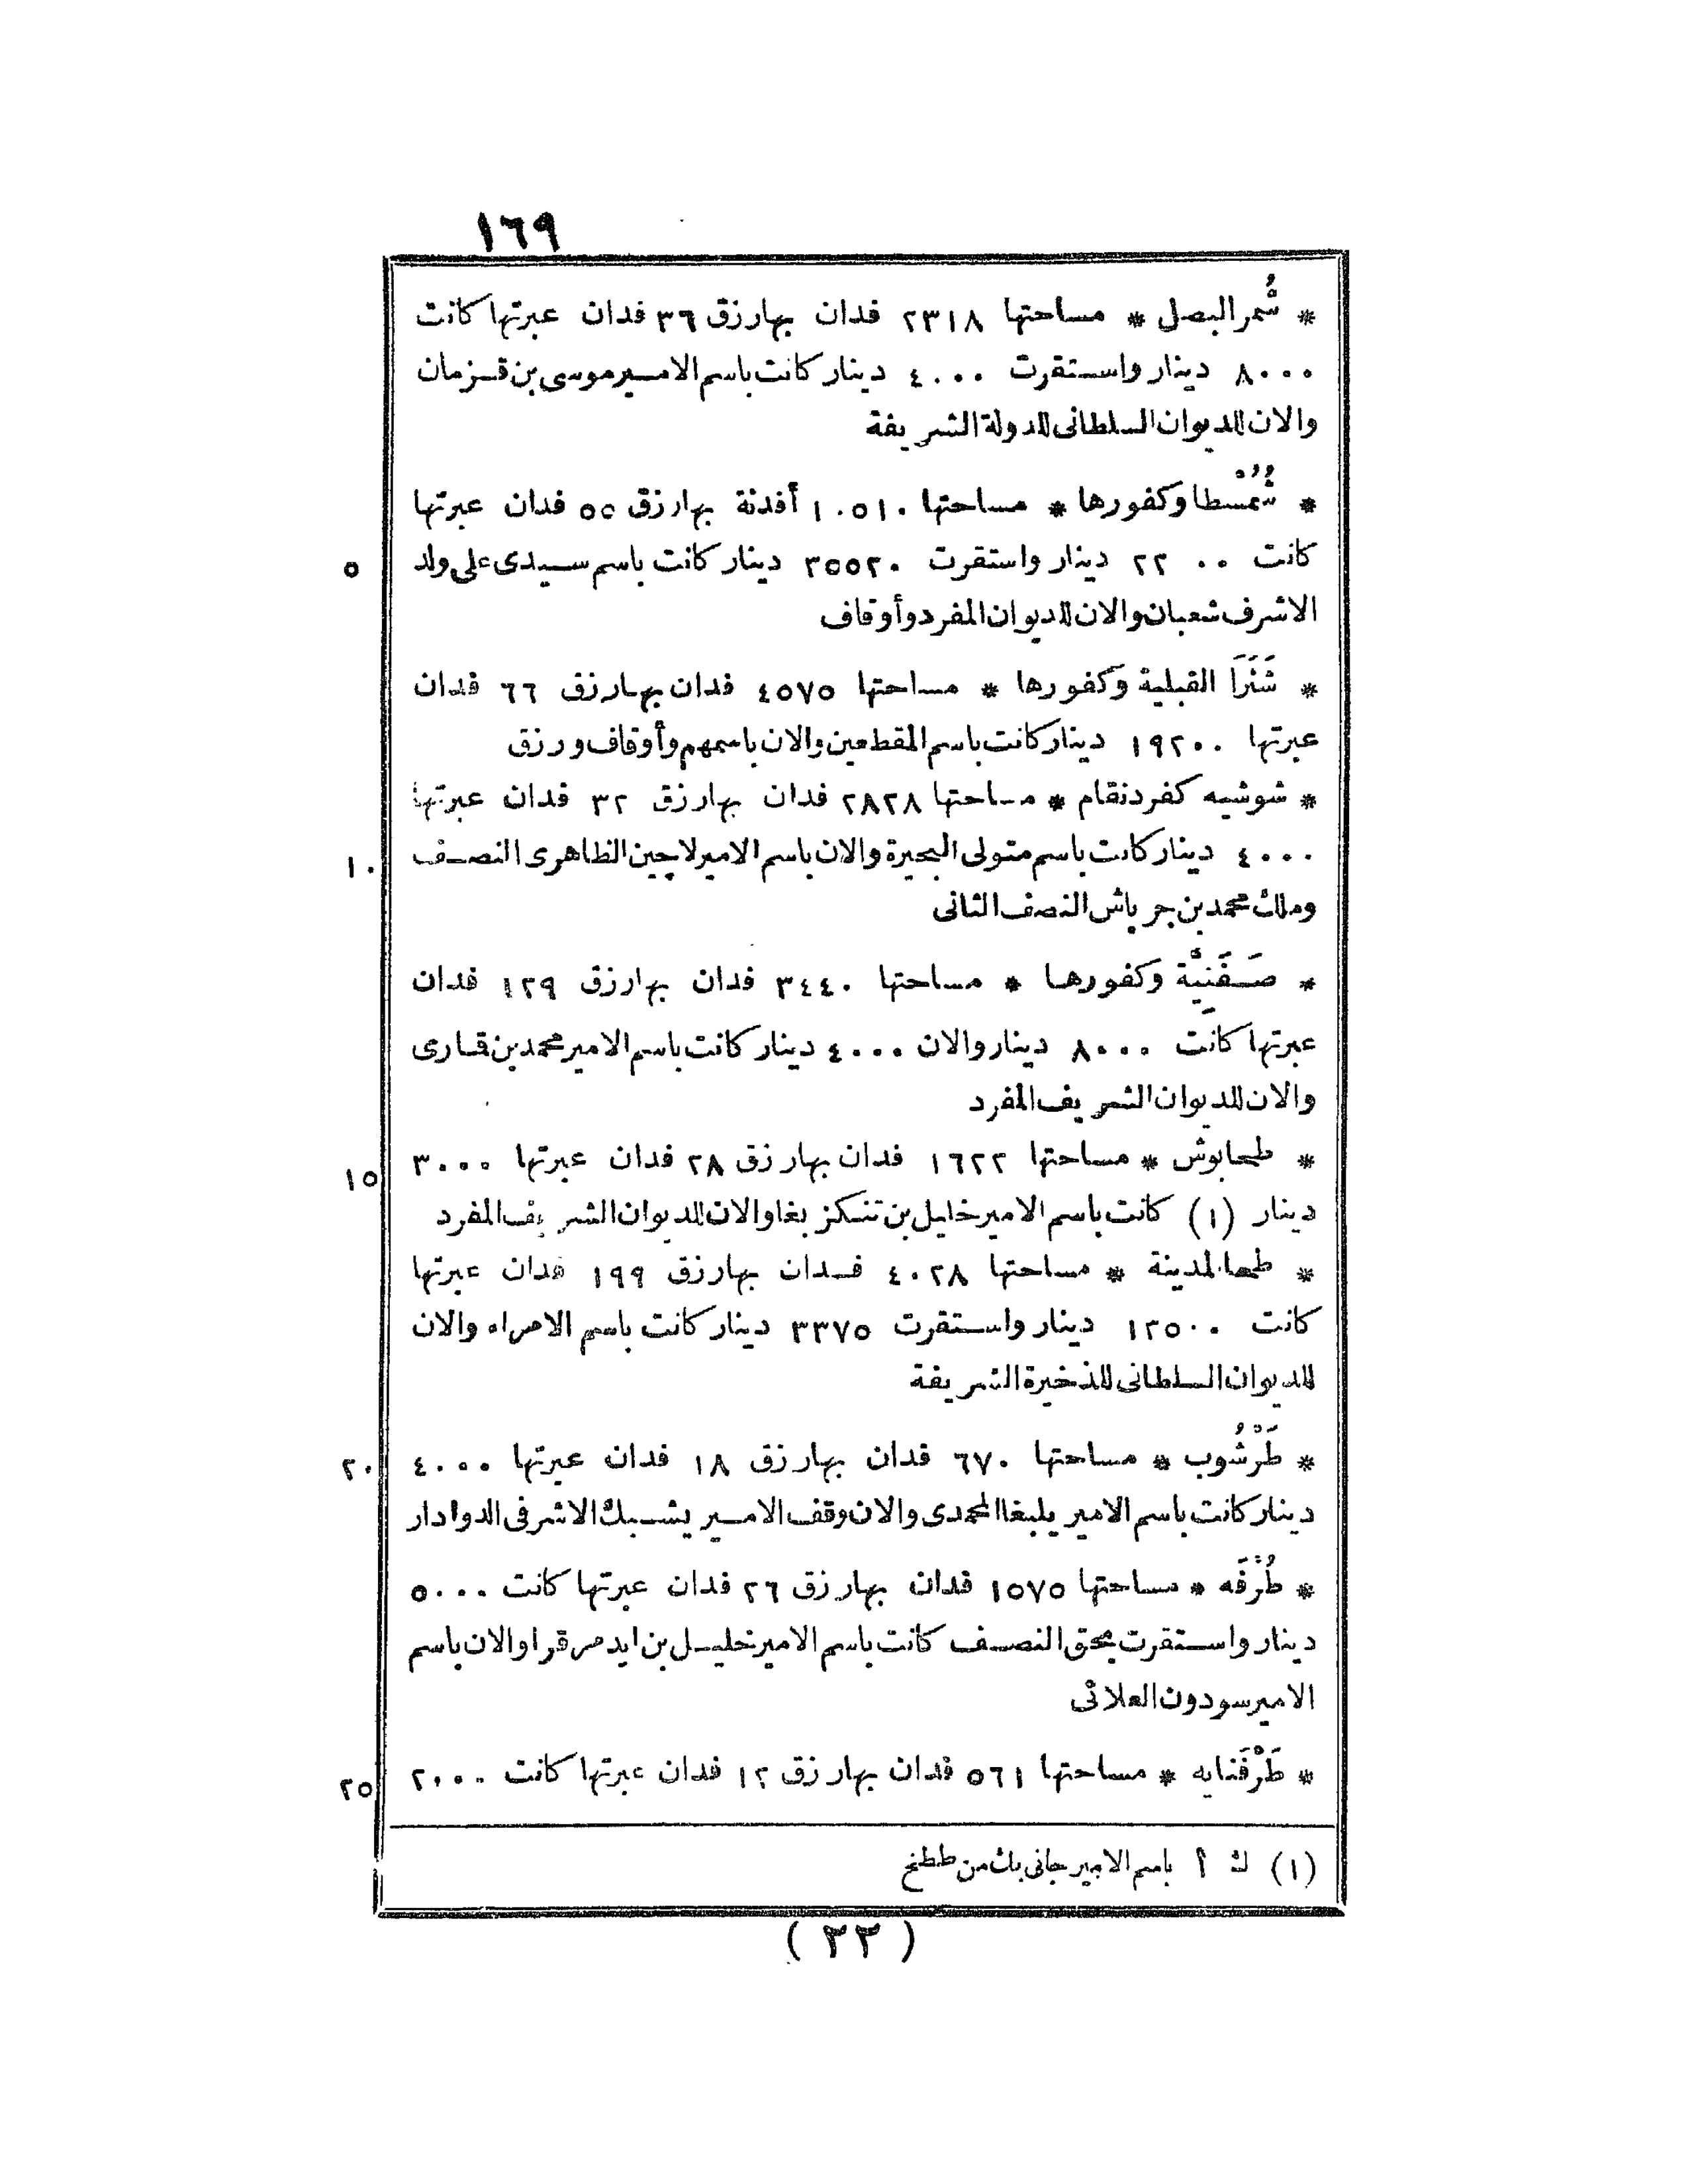 ١٦٩
* شُمر البصل * مساحتها ٢٣١٨ فدان بهارزق ٣٦ فدان عبرتها كانت
٨٠٠٠ دينار واستقرت ٤٠٠٠ دينار كانت باسم الامير موسى بن قزمان
والان للديوان السلطانى للدولة الشريفة
* شُمُسْطا وكفورها * مساحتها ١٠٥١٠ أفدنة بهارزق ٥٥ فدان عبرتها
كانت ٢٢٠٠ دينار واستقرت ٣٥٥٢٠ دينار كانت باسم سيدى على ولد
٥
الاشرف شعبان والان للديوان المفرد وأوقاف
* شَنَرَا القبلية وكفورها * مساحتها ٤٥٧٥ فدان بهارزق ٦٦ فدان
عبرتها ١٩٢٠٠ دينار كانت باسم المقطعين والان باسمهم وأوقاف ورزق
* شوشيه كفر دنقام * مساحتها ٢٨٢٨ فدان بهارزق ٣٢ فدان عبرتها
٤٠٠٠ دينار كانت باسم متولى البحيرة والان باسم الامير لاچين الظاهرى النصف
١٠
وملك محمد بن جرباش النصف الثانى
* صَفَنِيَّة وكفورها * مساحتها ٣٤٤٠ فدان بهارزق ١٢٩ فدان
عبرتها كانت ٨٠٠٠ دينار والان ٤٠٠٠ دينار كانت باسم الامير محمد بن قارى
والان للديوان الشريف المفرد
* طحابوش * مساحتها ١٦٢٢ فدان بهارزق ٢٨ فدان عبرتها ٣٠٠٠
١٥
دينار (١) كانت باسم الامير خليل بن تنكز بغا والان للديوان الشريف المفرد
* طحا المدينة * مساحتها ٤٠٢٨ فدان بهارزق ١٩٩ فدان عبرتها
كانت ١٢٥٠٠ دينار واستقرت ٣٣٧٥ دينار كانت باسم الامراء والان
للديوان السلطانى للذخيرة الشريفة
* طَرْشُوب * مساحتها ٦٧٠ فدان بهارزق ١٨ فدان عبرتها ٤٠٠٠
٢٠
دينار كانت باسم الامير يلبغا المحمدى والان وقف الامير يشبك الاشرفى الدوادار
* طُرْفَه * مساحتها ١٥٧٥ فدان بهارزق ٢٦ فدان عبرتها كانت ٥٠٠٠
دينار واستقرت بحق النصف كانت باسم الامير خليل بن ايدمر قرا والان باسم
الامير سودون العلائى
* طَرْفَنايه * مساحتها ٥٦١ فدان بهارزق ١٢ فدان عبرتها كانت ٢٠٠٠
٢٥
(١) ك أ باسم الامير جانى بك من ططخ
(٢٢)